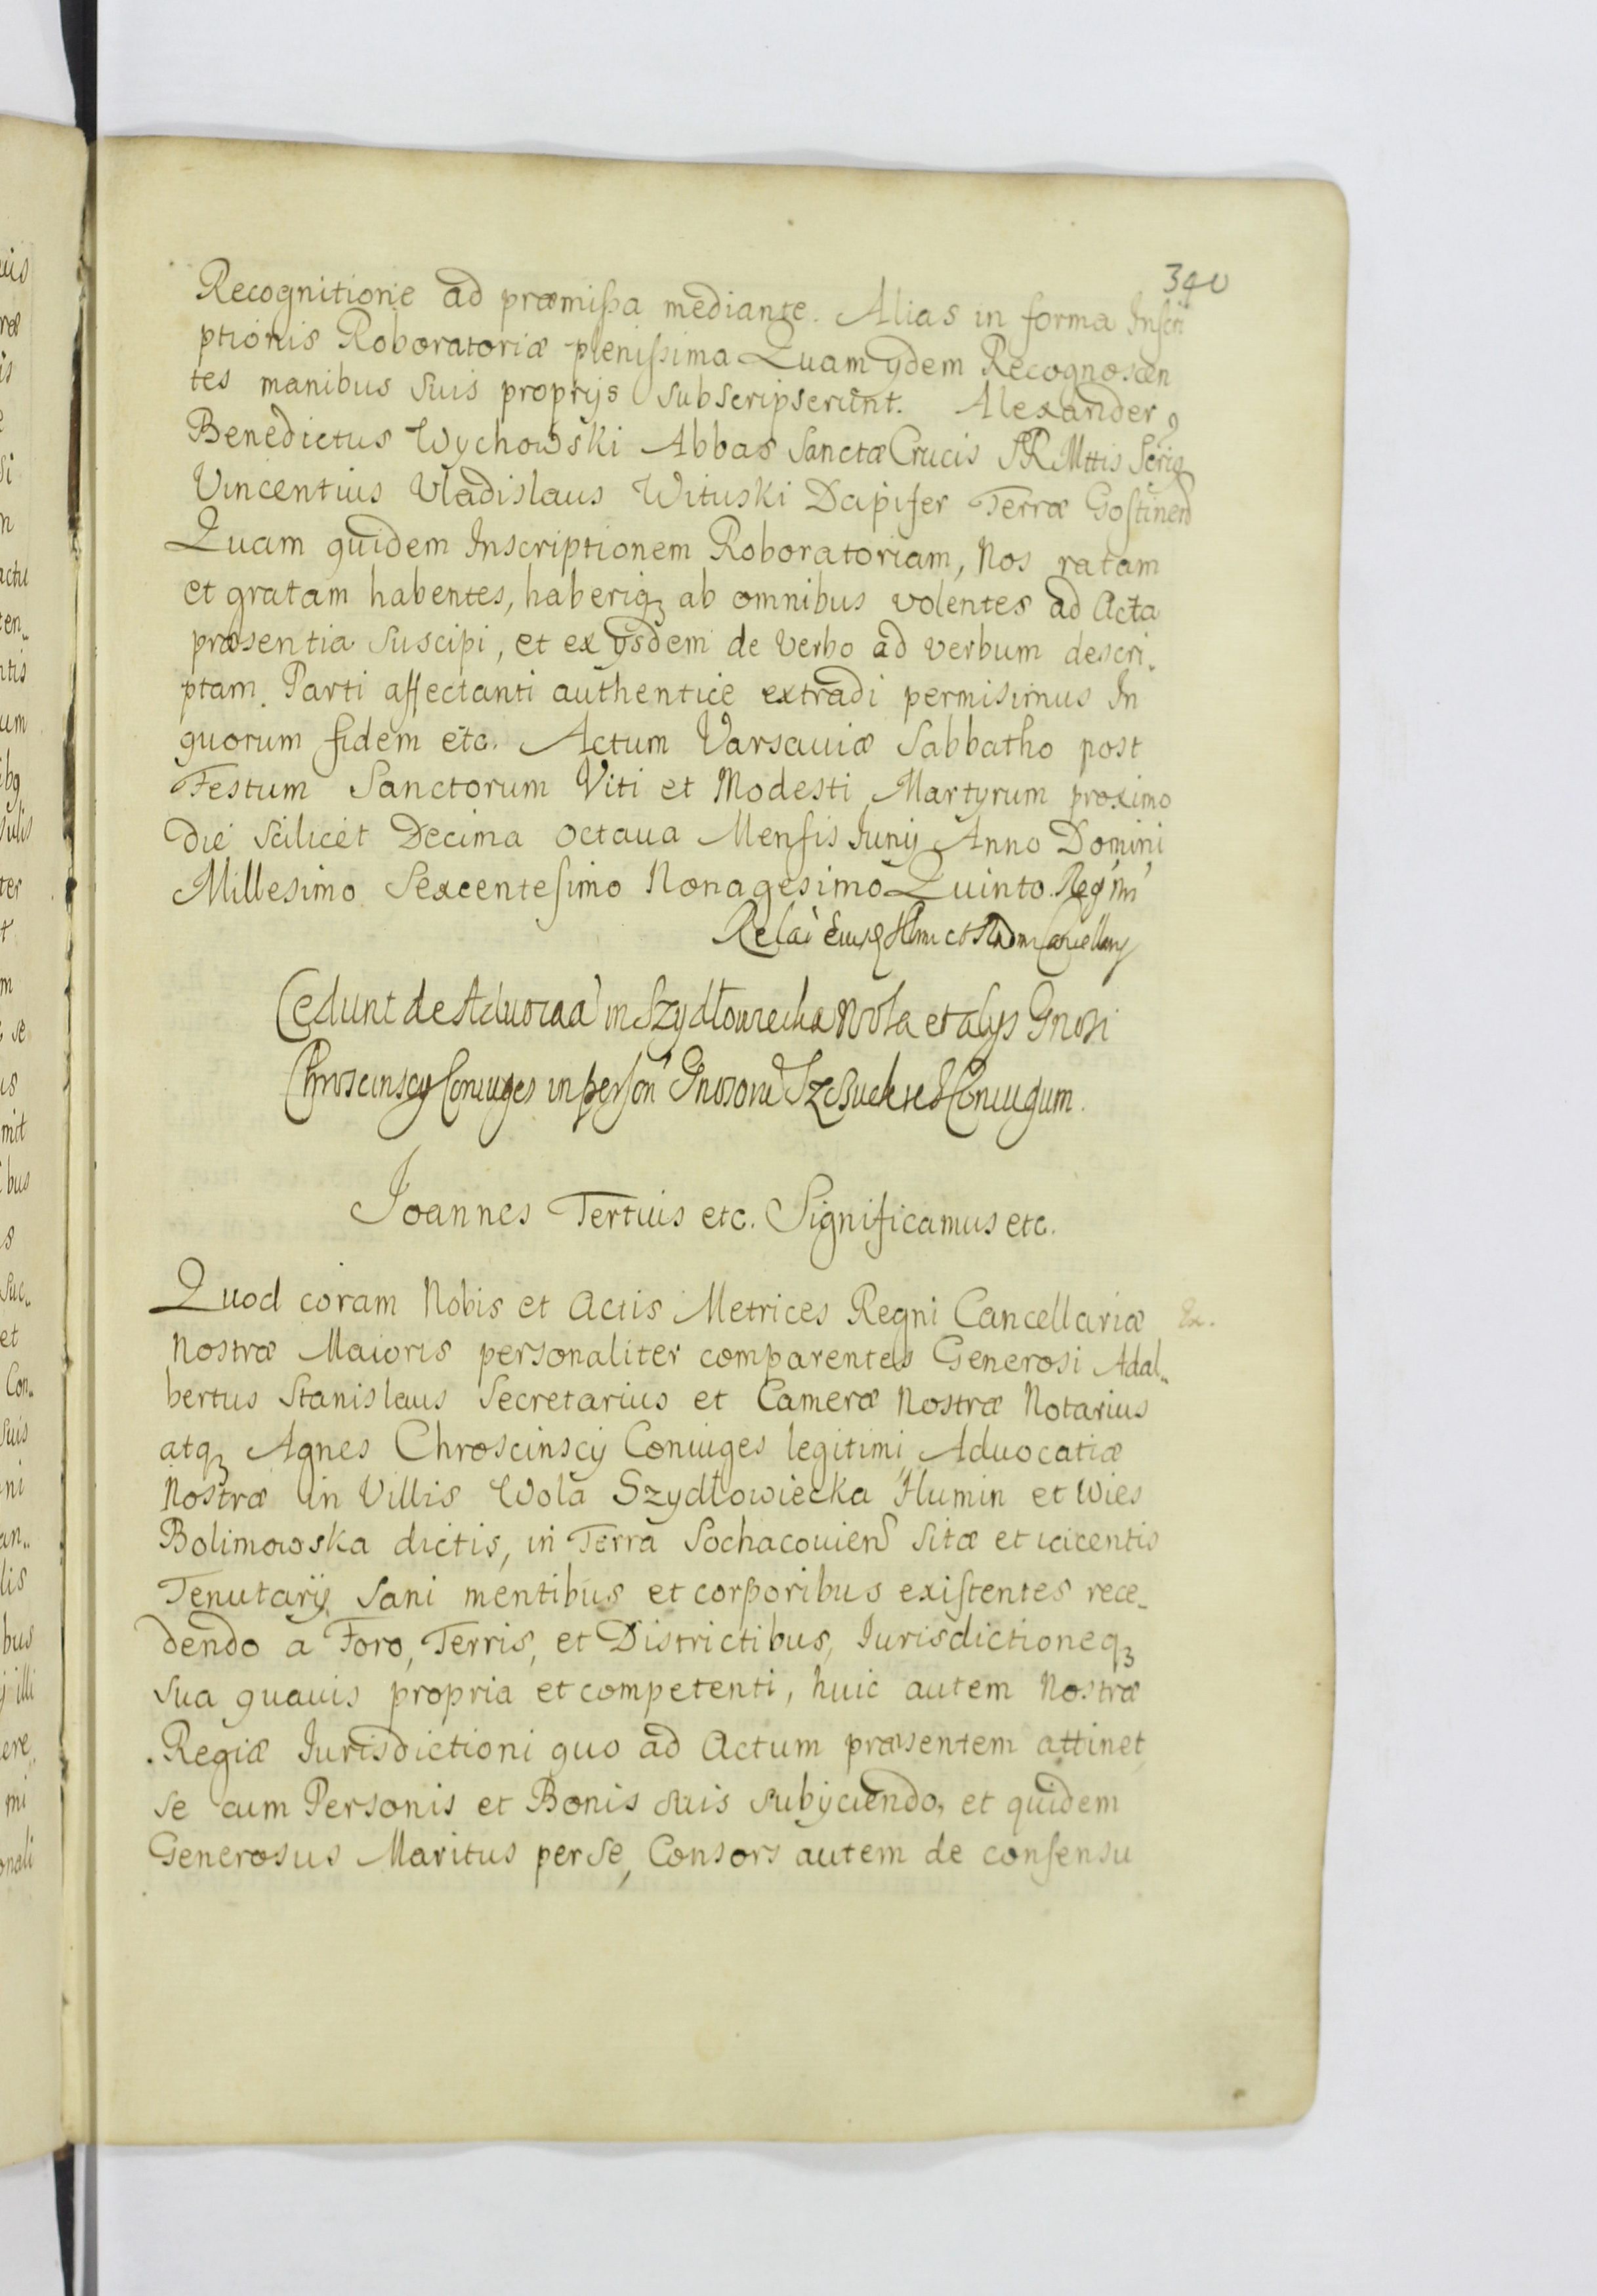 340
Recognitione ad præmissa mediante. Alias in forma Inscri
ptionis Roboratoriæ plenissima Quam ydem Recognoscen
tes manibus suis proprijs subscripserunt. Alexander
Benedictus Wychowski Abbas Sanctæ Crucis SRMttis
Vincentius Vladislaus Wituski Dapifer Terræ Gostinen
Quam quidem Inscriptionem Roboratoriam, Nos ratam
et gratam habentes, haberiq; ab omnibus volentes ad Acta
præsentia suscipi, et ex ysdem de verbo ad verbum descri-
ptam. Parti affectanti authentice extradi permisimus In
quorum fidem etc. Actum Varsauiæ Sabbatho post
Festum Sanctorum Viti et Modesti Martyrum proximo
die scilicet Decima octaua Mensis Iunij Anno Domini
Millesimo Sexcentesimo Nonagesimo Quinto. Regni
Cedunt de in Szydłowiecka Wola et alys Gnosi
Chroscinscy Coniuges in person Coniugum.
Joannes Tertius etc. Significamus etc.
Quod coram Nobis et Actis Metrices Regni Cancellariæ
Nostræ Maioris personaliter comparentes Generosi Adal-
bertus Stanislaus Secretarius et Cameræ Nostræ Notarius
atq; Agnes Chroscinscy Coniuges legitimi Aduocatiæ
Nostræ in Villis Wola Szydłowiecka Humin et Wies
Bolimowska dictis, in Terra Sochacouien sitæ et iacentis
Tenutarij sani mentibus et corporibus existentes rece-
dendo a Foro, Terris, et Districtibus, Iurisdictioneq;
sua quauis propria et competenti, huic autem Nostræ
Regiæ Iurisdictioni quo ad Actum præsentem attinet
se cum Personis et Bonis suis subyciendo, et quidem
Generosus Maritus per se, Consors autem de consensu